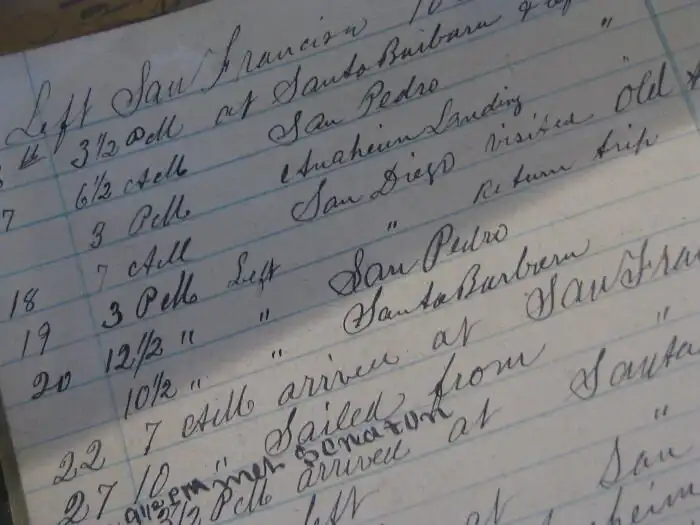 Left San Francisco 10
th 3½ PM at Santa Barbara
7 6½ AM San Pedro "
3 PM Anaheim Landing
7 AM San Diego visited Old
18 3 PM Left " Return trip
19 12½ " " San Pedro
20 10½ " " Santa Barbara
22 7 AM arrived at San Fran
27 10 " Sailed from "
9½ PM met Senator
3½ PM arrived at Santa
left "
at San